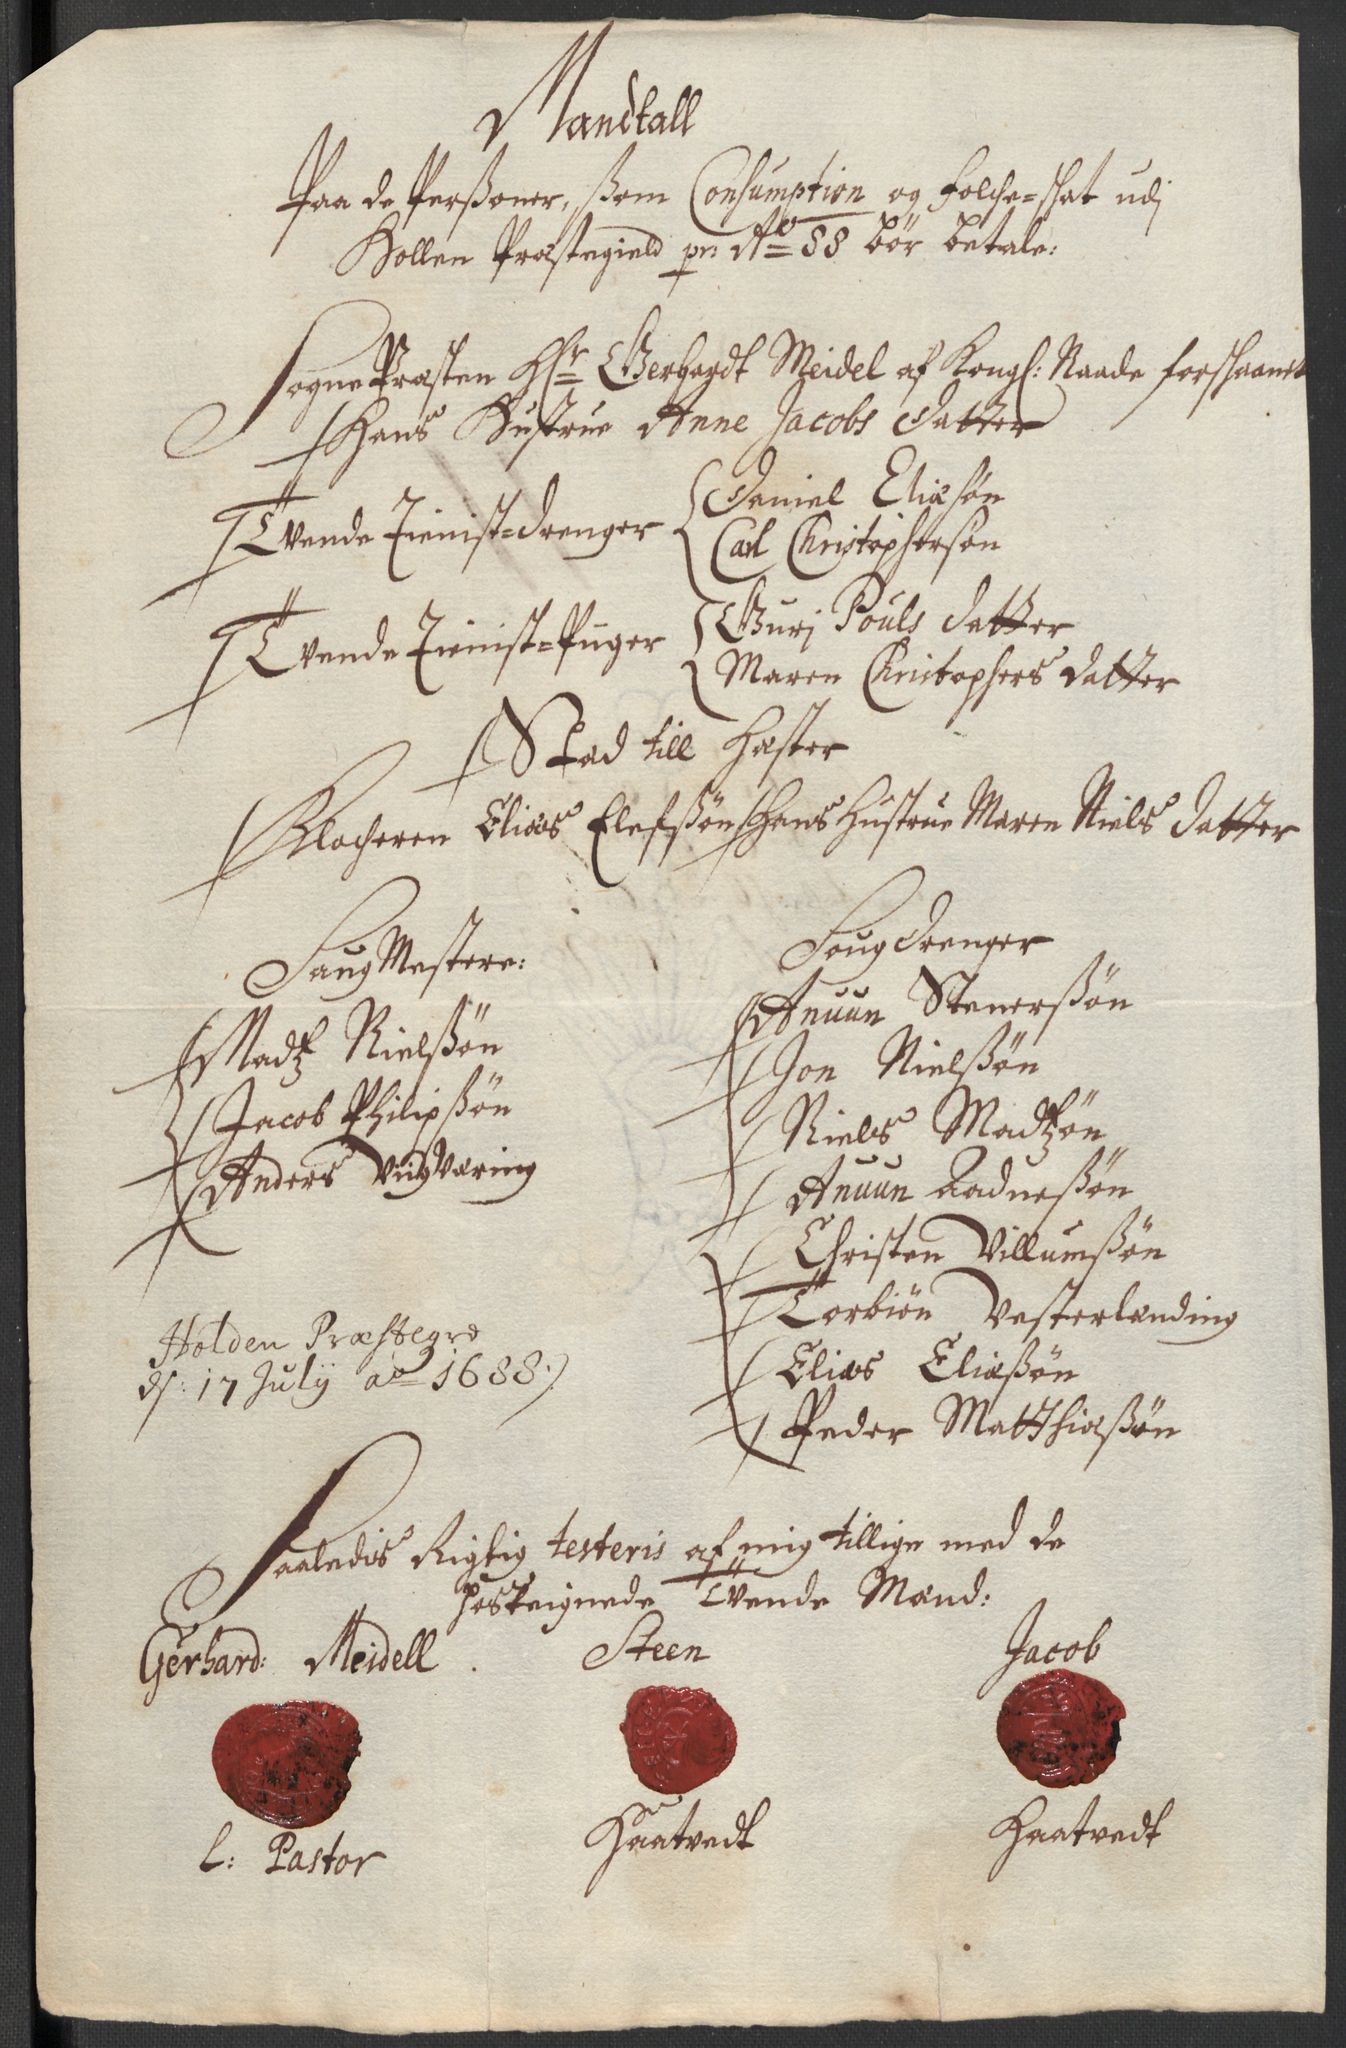 Mandtall
Paa de Persßoner, ßom Consumption og folche-skat udj
Hollen Præstegield pr: Ao 88 bör betale:
Sogne Præsten Hr Gerhardt Meidel af Kongl: Naade forskaanet
Hans Hustrue Anne Jacobs datter
Tvende Tienist-drenger
Daniel Eliæsøn
Carl Christophersøn
Tvende Tienist-Piiger
Gurj Pouls datter
Maren Christophers datter
Stad till Hæster
Klocheren Elias Elefsßøn Hans Hustrue Maren Niels datter
Saug Mestere:
Madtz Nielsßön
Jacob Philipsßön
Anders Væring
Soug drenger
Anuun Stenersßön
Jon Nielsßøn
Niels Madtzøn
Anuun Aadnesßön
Christen Villumsßøn
Torbiøn Vesterlænding
Elias Eliæsßøn
Peder Matthiæsßøn
Holden Præstegrd
ds: 17 Julij ao 1688.
Saaledis Rigtig testeris af mig tillige med de
hosteignede Tvende Mænd:
Gerhard: Meidell.
Steen
Jacob
L: Pastor
Haatvedt
Haatvedt